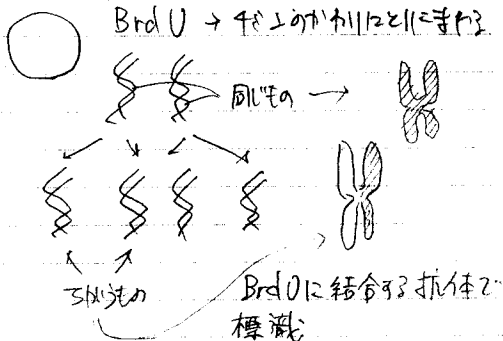 BrdU → チミンのかわりにとりこまれる
同じもの →
ちがうもの
BrdUに結合する抗体で
標識